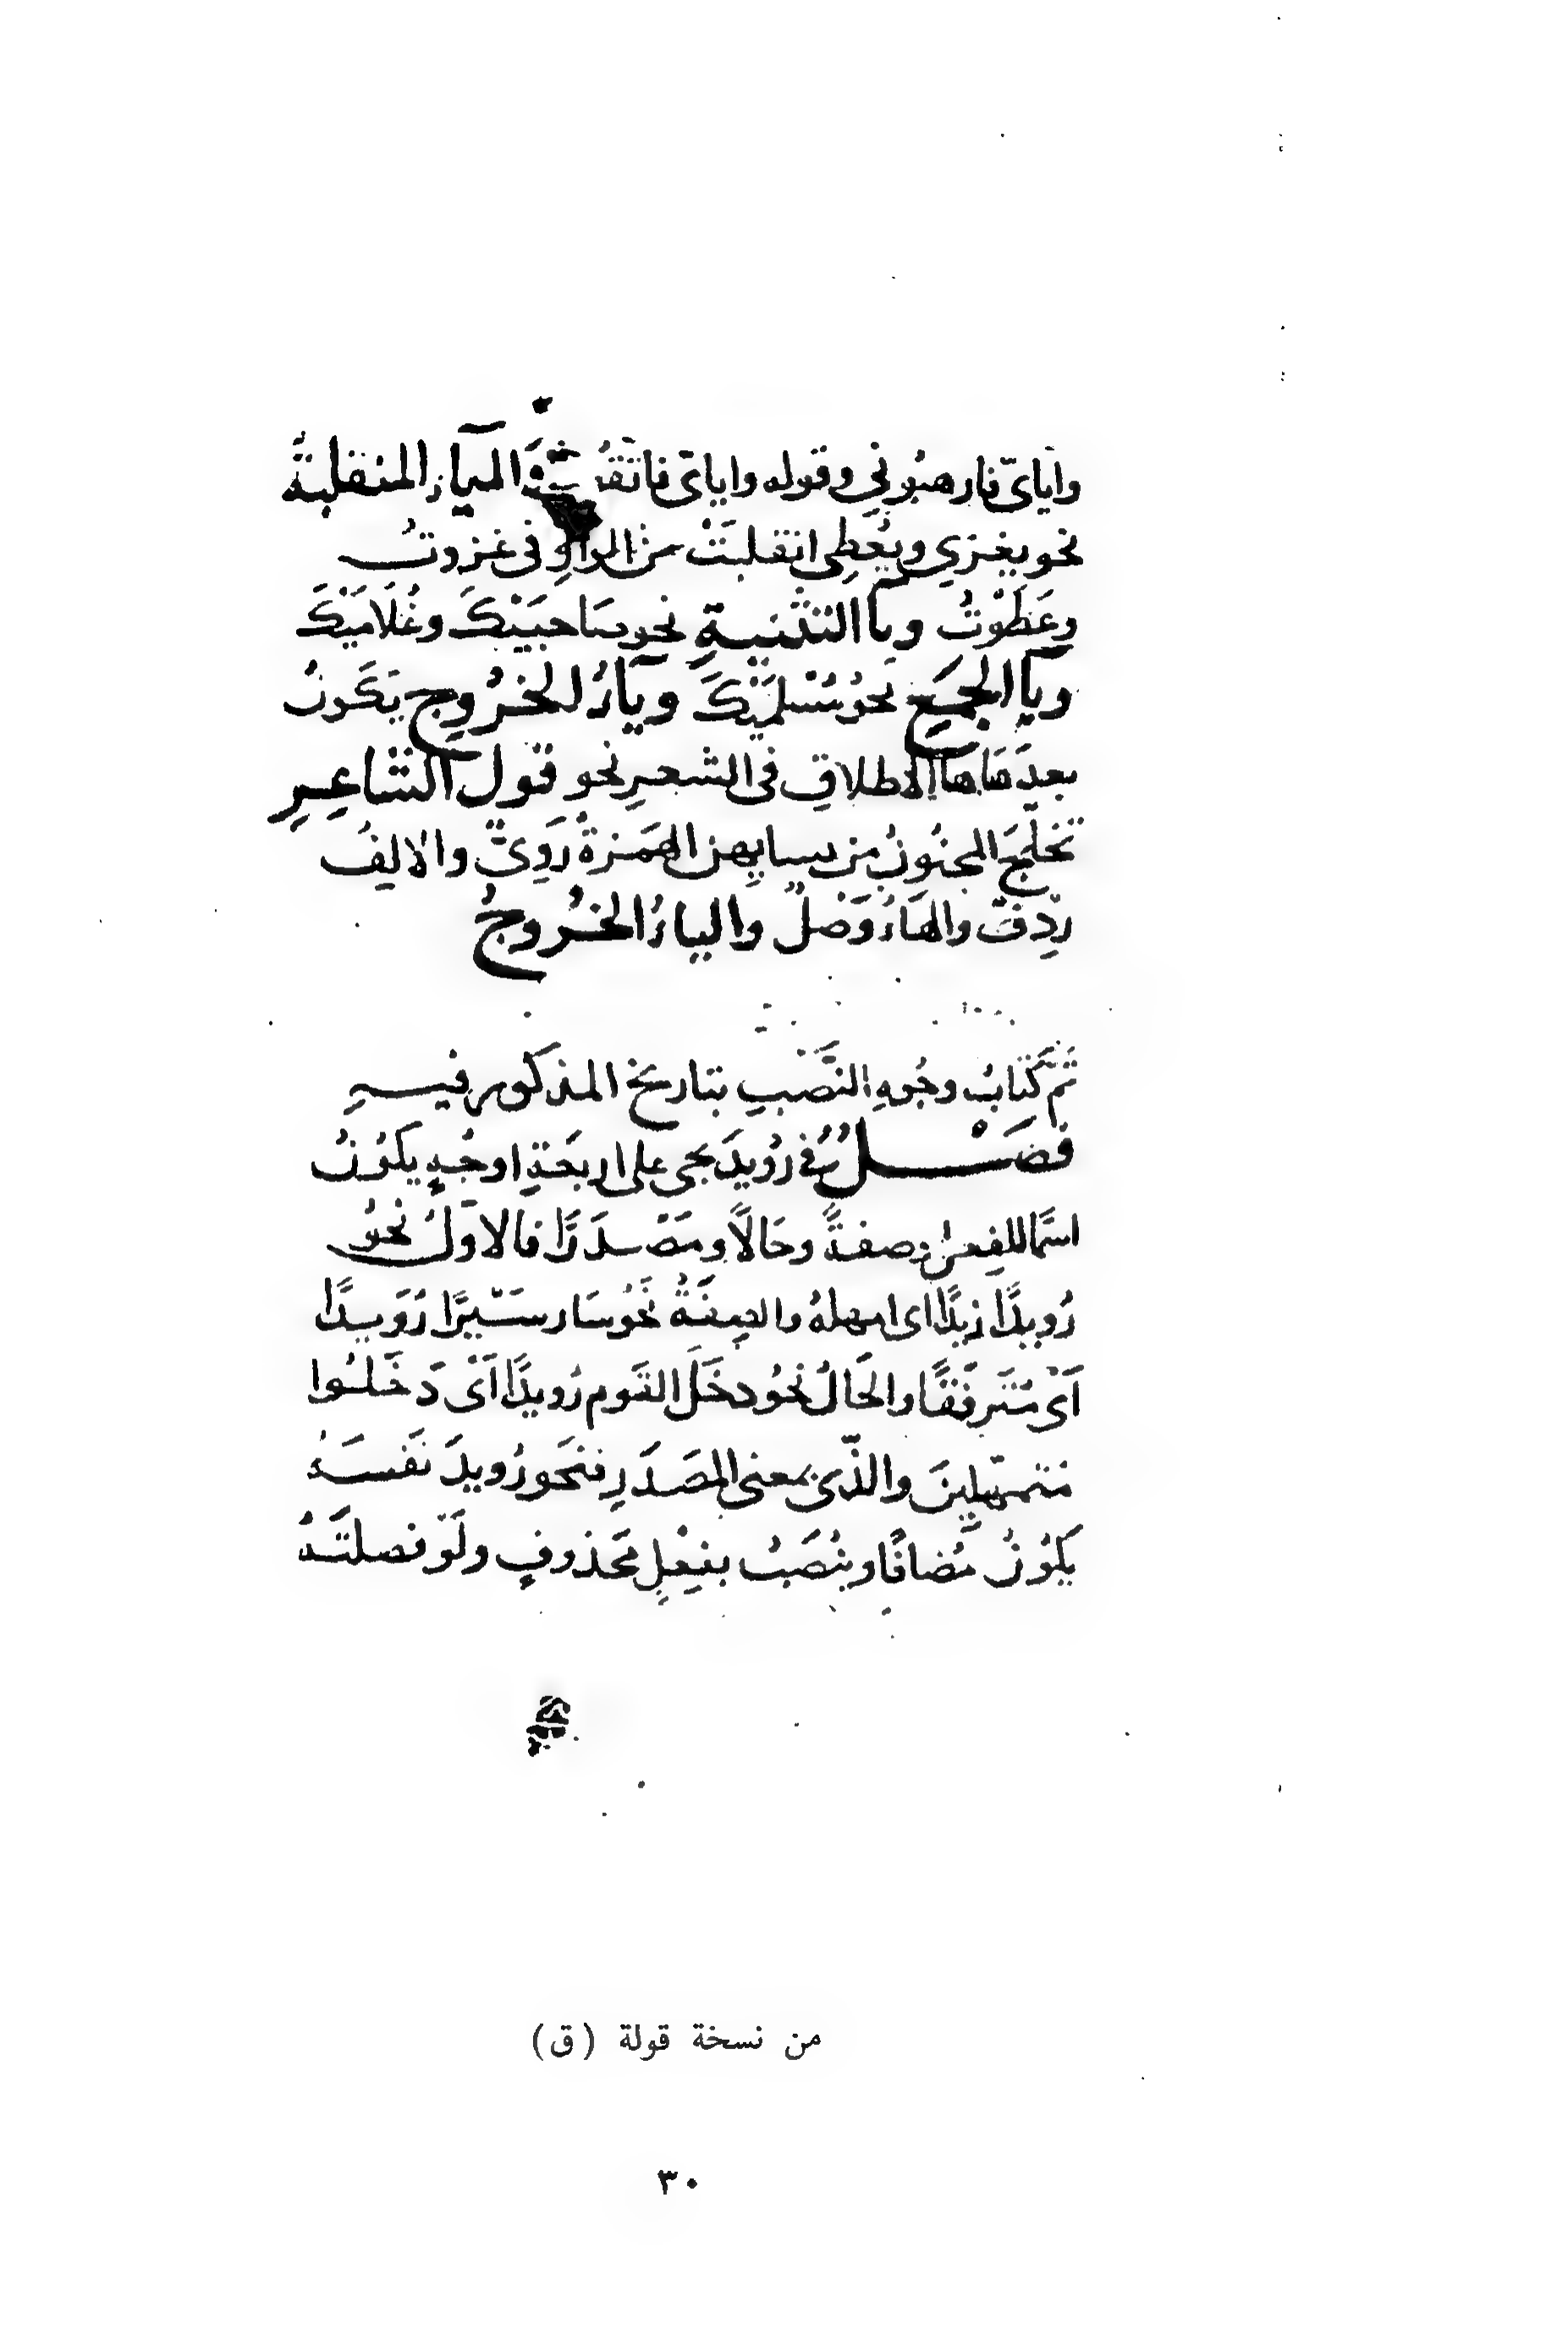 واياىّ فارهبُونِي وقوله واياىّ فاتّقُونِ وَاليآءُ المنقلبةُ
نحو يغزي ويُعطِي انقلبَتْ من الواوِ فى غزوتُ
وعَطَوْتُ ويآ التثنيةِ نحو صاحبَيْكَ وغُلَامَيْكَ
ويآ الجمَعِ نحوُ مُسْلمَيْكَ ويآءُ الخرُوجِ يَكَونُ
بعدَ هَا الاطلاقِ فى الشعرِ نحو قول الشاعِرِ
تَخلّجَ المجنُونِ من كسايِهِى الهمَزةُ رَوِىّ والالِفُ
رِدِفٌ والهَاءُ وَصْلٌ والياءُ الخرُوجُ
تَمَّ كتَابُ وجُوهِ النَّصَبِ بتاريخ المذكور فيهِ
فَصَْلٌ فى رُويدَ يجى على اربعَةِ اوجُهٍ يكُونُ
اسمًا للفِعلِ وصفةً وحَالًا ومَصْدَرًا فالاوّلُ نحوُ
رُويدًا زيدًا اى امهلهُ والصِفَةُ نحَوُ سَار سَيْرًا رُوَيدًا
اَىْ مُتَرفّقًا والحَالُ نحوُ دخَلَ القَوم رُويدًا اَىْ دَخَلُوا
مُتمهّلِينَ والذّى بمعنى المصَدَرِ فنَحو رُويدَ نَفسَهُ
يَكُونُ مُضافًا وينُصَبُ بفِعْلٍ محَذوفٍ ولَوْ فصلتَهُ
من نسخة قولة (ق)
٣٠